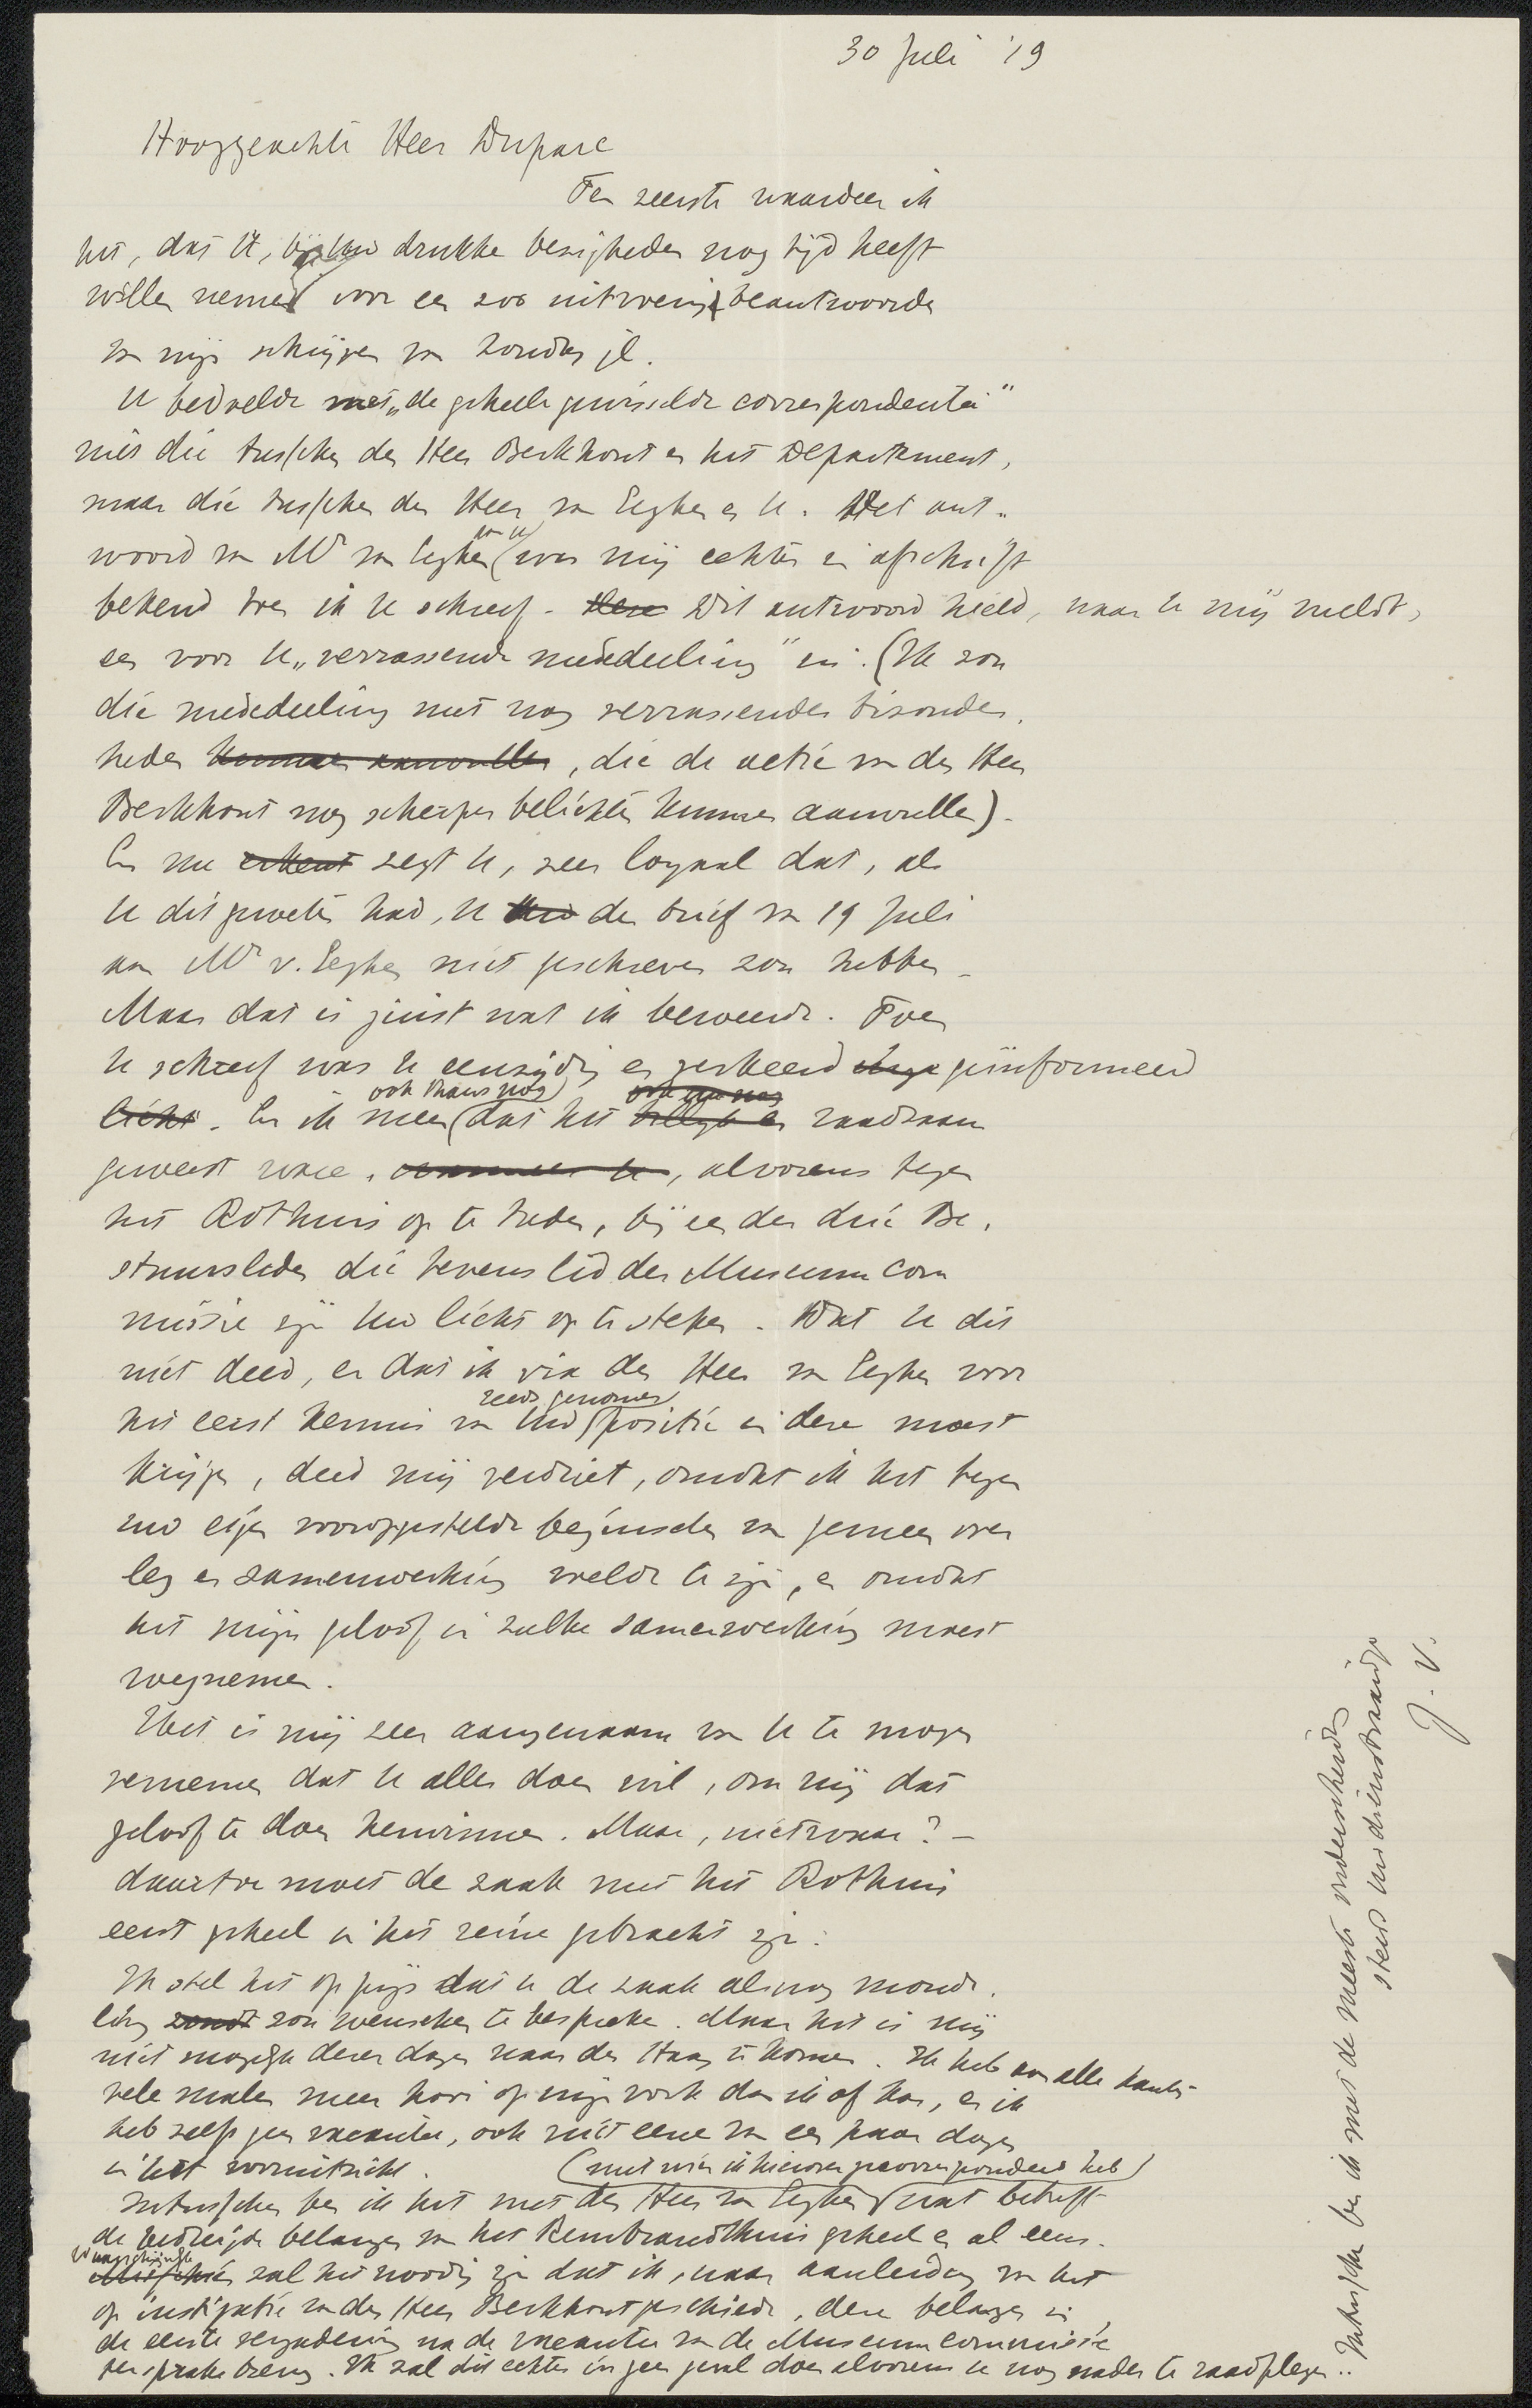 30 Juli '19
Hooggeachte Heer Duparc
Ten zeerste waardeer ik
het, dat U, bij Uw drukke bezigheden nog tijd heeft
willen nemen voor een zoo uitvoerig beantwoorden
van mijn schrijven van Zondag jl.
U bedoelde met „de geheele gewisselde correspondentie"
niet die tusschen den Heer Berkhout en het Departement,
maar die tusschen den Heer van Eeghen en U. Het ant-
woord van Mr van Eeghen (aan U) was mij echter in afschrift
bekend toen ik U schreef. Dit antwoord hield, naar U mij meldt,
een voor U „verrassende mededeeling" in. (Ik zou
die mededeeling met nog verrassender bizonder-
heden kunnen aanvullen, die de actie van den Heer
Berkhout nog scherper belichten kunnen aanvullen).
En nu erkent zegt U, zeer loyaal dat, als
U dit geweten had, U Uw den brief van 19 Juli
aan Mr v. Eeghen niet geschreven zou hebben.
Maar dat is juist wat ik beweerde. Toen
U schreef was U eenzijdig en verkeerd geïnformeerd
licht. En ik meen (ook thans nog) dat het ook nu nog billijk en raadzaam
geweest ware, wanneer U, alvorens tegen
het R'dthuis op te treden, bij een der drie Be-
stuursleden die tevens lid der Museumcom
missie zijn Uw licht op te steken. Dat U dit
niet deed, en dat ik via den Heer van Eeghen voor
het eerst kennis van Uw reeds genomen positie in deze moest
krijgen, deed mij verdriet, omdat ik het tegen
uw eigen vooropgestelde beginselen van gemeen over
leg en samenwerking voelde te zijn, en omdat
het mijn geloof in zulke samenwerking moest
wegnemen.
Het is mij zeer aangenaam van U te mogen
vernemen dat U alles doen wil, om mij dat
geloof te doen herwinnen. Maar, nietwaar? –
daartoe moet de zaak met het R'dthuis
eerst geheel in het reine gebracht zijn.
Ik stel het op prijs dat U de zaak alsnog monde-
ling zoudt zou wenschen te bespreken. Maar het is mij
niet mogelijk dezer dagen naar den Haag te komen. Ik heb aan alle kanten
vele malen meer hooi op mijn vork dan ik af kan, en ik
heb zelfs geen vacantie, ook niet eene van een paar dagen
in het vooruitzicht.
Intusschen ben ik het met den Heer van Eeghen (met wien ik hierover gecorrespondeerd heb) wat betreft
de bedreigde belangen van het Rembrandthuis geheel en al eens.
Misschien Waarschijnlijk zal het noodig zijn dat ik, naar aanleiding van het
op instigatie van den Heer Berkhout geschiede, deze belangen in
de eerste vergadering na de vacantie van de Museumcommissie
ter sprake breng. Ik zal dit echter in geen geval doen alvorens U nog nader te raadplegen..
Intusschen ben ik met de meeste onderscheiding
steeds Uw dienstwaardige
J. V.